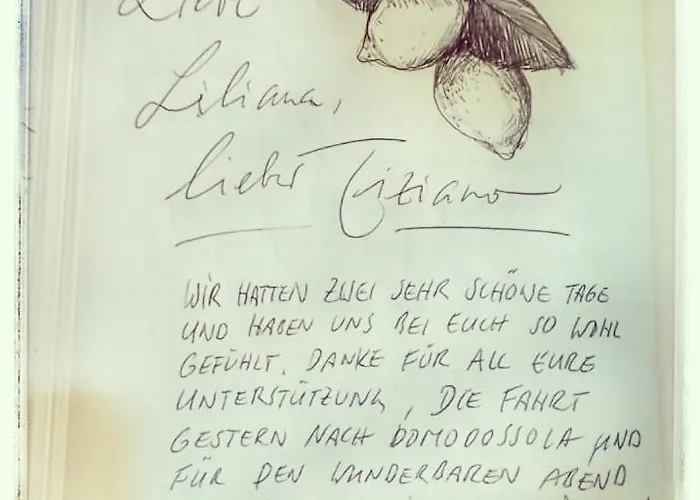 Liebe
Liliana,
lieber Tiziano
WIR HATTEN ZWEI SEHR SCHÖNE TAGE
UND HABEN UNS BEI EUCH SO WOHL
GEFÜHLT. DANKE FÜR ALL EURE
UNTERSTÜTZUNG, DIE FAHRT
GESTERN NACH DOMODOSSOLA UND
FÜR DEN WUNDERBAREN ABEND